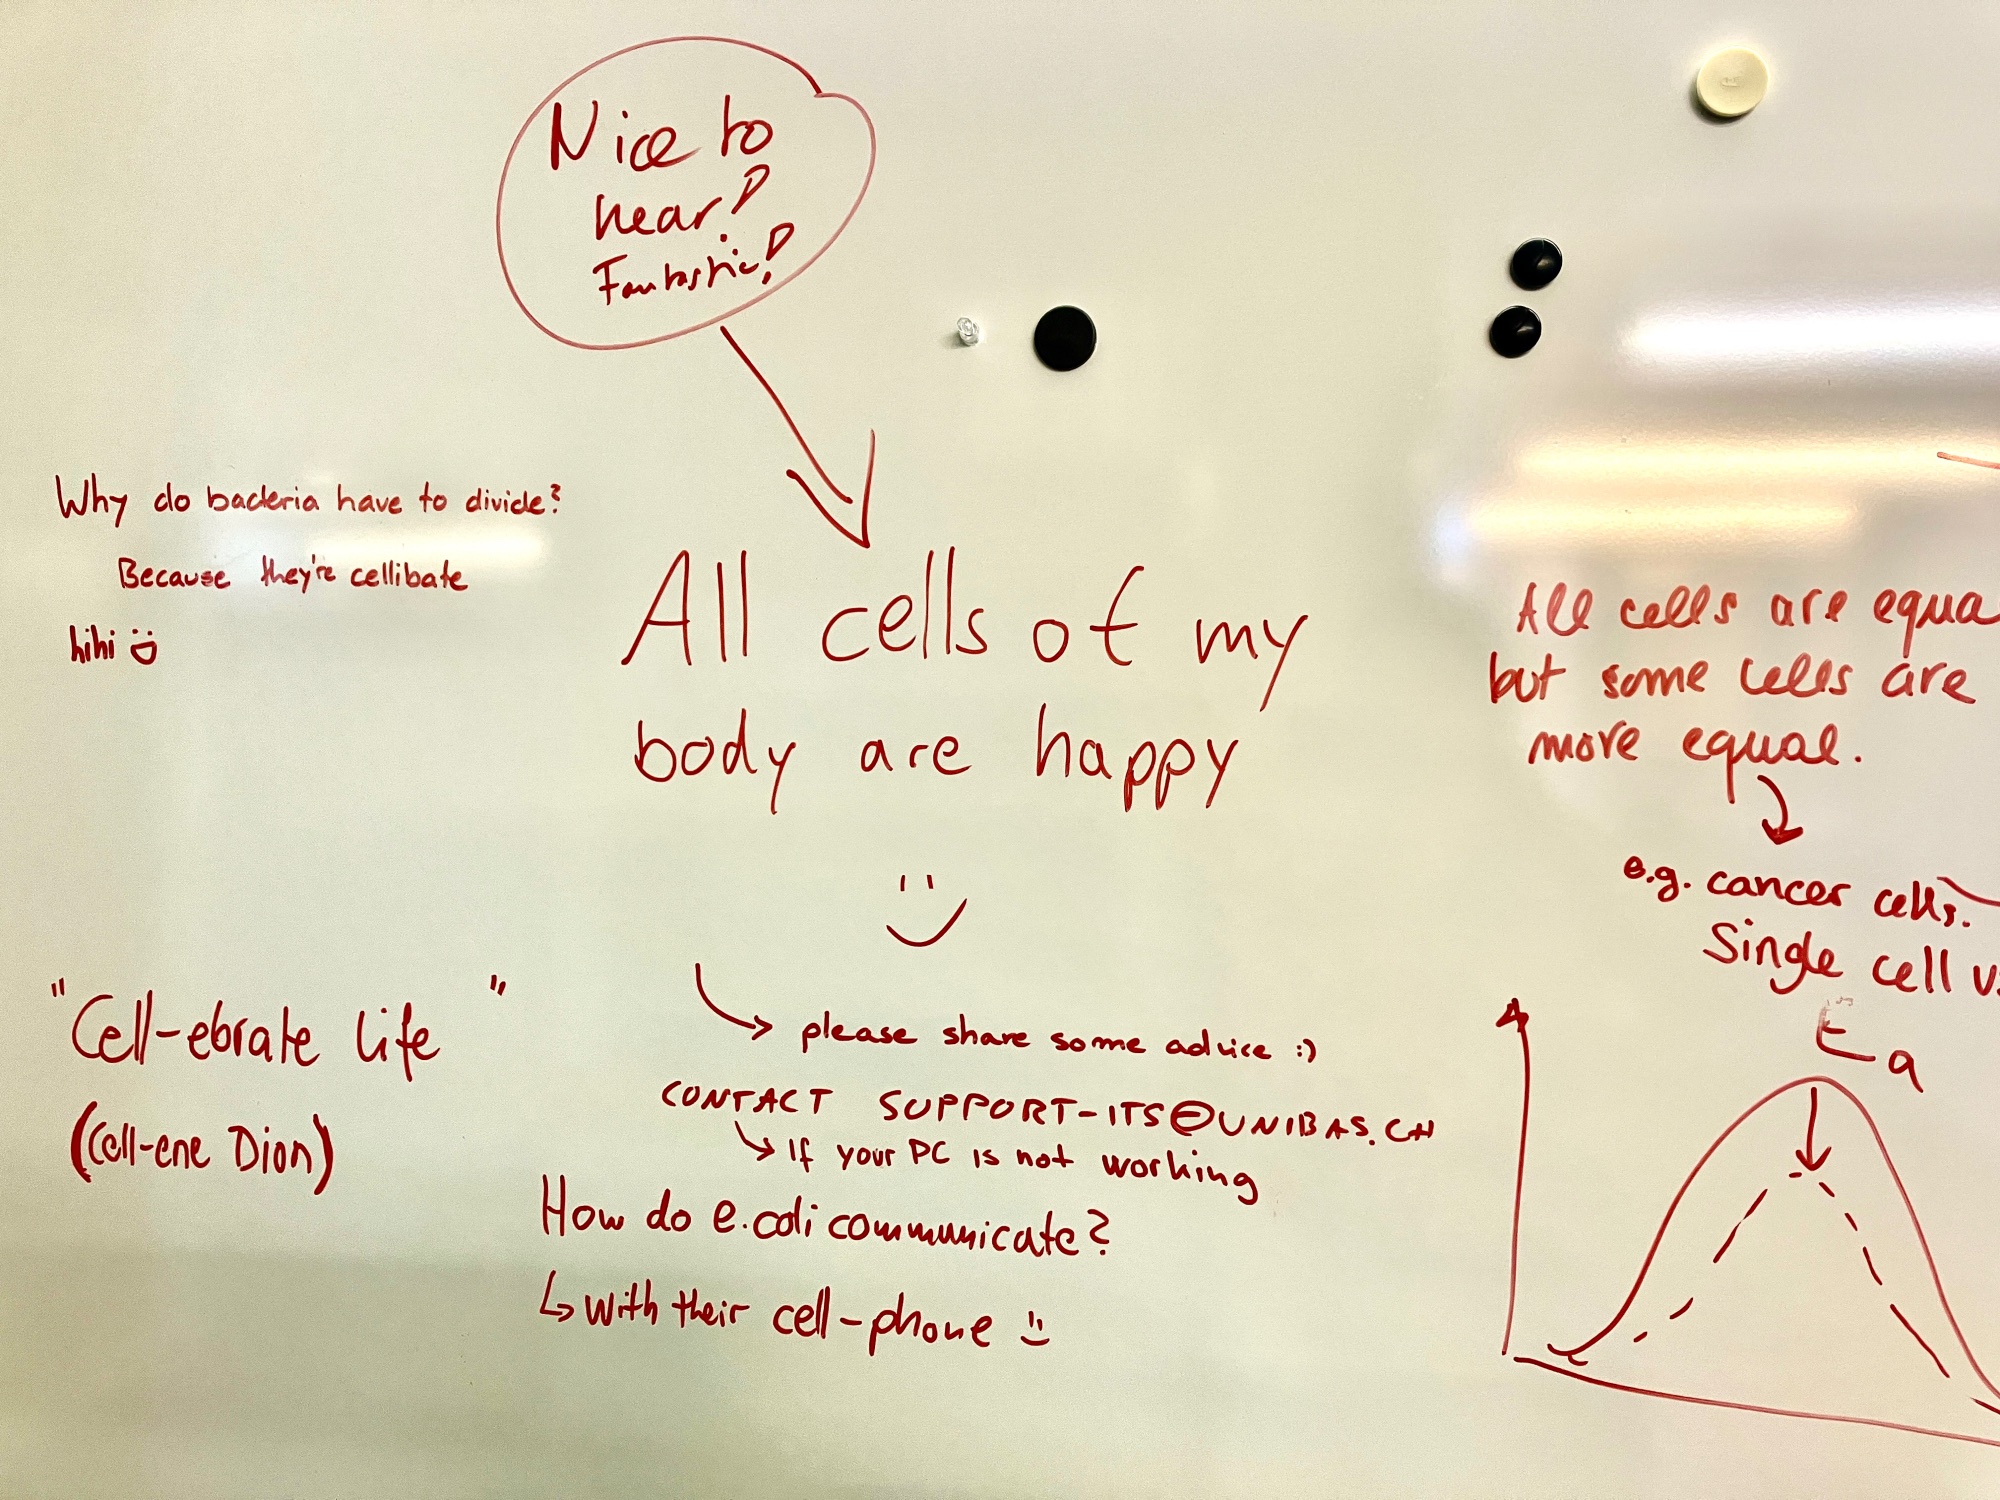 Nice to
hear!
Fantastic!
Why do bacteria have to divide?
Because they're cellibate
hihi
All cells of my
body are happy
"Cell-ebrate life"
(Cell-ene Dion)
please share some advice :)
CONTACT SUPPORT-ITS@UNIBAS.CH
If your PC is not working
How do e.coli communicate?
with their cell-phone
All cells are equa
but some cells are
more equal.
e.g. cancer cells.
Single cell vs
Ea